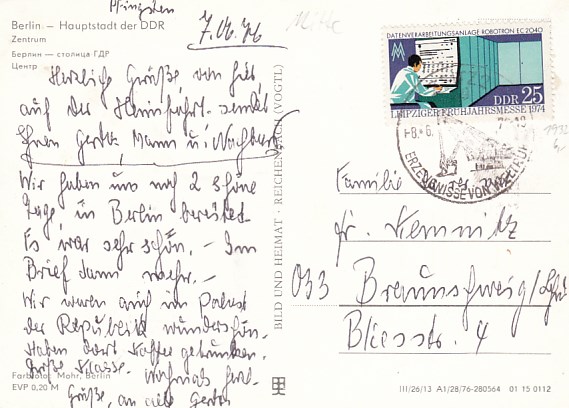 Pfingsten
Berlin – Hauptstadt der DDR
Zentrum
Берлин — столица ГДР
Центр
7.06.76
Mitte
Herzliche Grüße, von hier
auf der Heimfahrt sendet
Ihnen Gerta, Mann u.
Wir haben uns noch 2 schöne
Tage in Berlin bereitet.
Es war sehr schön. – Im
Brief dann mehr. –
Wir waren auch im Palast
der Republik wunderschön.
Haben dort Kaffee getrunken.
Große Klasse. Nochmals
Grüße, an alle Gerta
Farbfoto: Mohr, Berlin
EVP 0,20 M
BILD UND HEIMAT · REICHENBACH (VOGTL)
DATENVERARBEITUNGSANLAGE ROBOTRON EC 2040
DDR 25
LEIPZIGER FRÜHJAHRSMESSE 1974
-8.-6.
ERZEUGNISSE VON
Familie
Fr. Kemnitz
033 Braunschweig/
Bliesstr. 4
III/26/13 A1/28/76-280564 01 15 0112